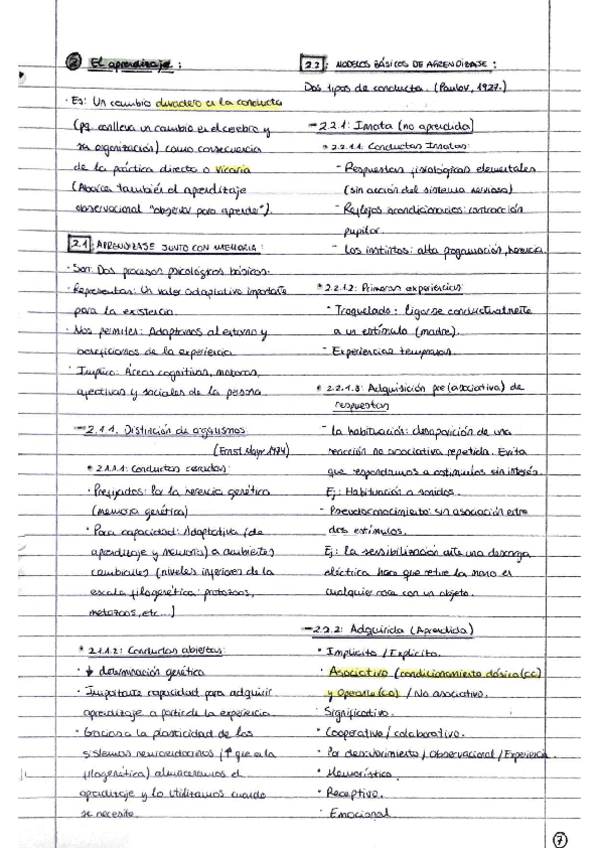 ② El aprendizaje:
· Es: Un cambio duradero en la conducta
(pq. conlleva un cambio en el cerebro y
su organización) como consecuencia
de la práctica directa o vicaria
(Abarca también el aprendizaje
observacional "observar para aprender").
2.1: APRENDIZAJE JUNTO CON MEMORIA:
· Son: Dos procesos psicológicos básicos.
· Representan: Un valor adaptativo importante
para la existencia.
· Nos permiten: Adaptarnos al entorno y
beneficiarnos de la experiencia
· Implica: Áreas cognitivas, motoras,
afectivas y sociales de la persona.
- 2.1.1. Distinción de organismos:
(Ernst Mayr 1974)
• 2.1.1.1: Conductas cerradas:
· Prefijados: Por la herencia genética
(memoria genética)
· Poca capacidad: Adaptativa (de
aprendizaje y memoria) a ambientes
cambiantes (niveles inferiores de la
escala filogenética: protozoos,
metazoos, etc...)
• 2.1.1.2: Conductas abiertas:
· ↓ determinación genética
· Importante capacidad para adquirir
aprendizaje a partir de la experiencia.
· Gracias a la plasticidad de los
sistemas neuroendocrinos (↑ que a la
filogenética) almacenamos el
aprendizaje y lo utilizamos cuando
se necesite.
2.2: MODELOS BÁSICOS DE APRENDIZAJE:
Dos tipos de conducta. (Pavlov, 1927.)
- 2.2.1: Innata (no aprendida)
• 2.2.1.1: Conductas Innatas:
- Respuestas fisiológicas elementales
(sin acción del sistema nervioso)
- Reflejos incondicionados: contracción
pupilar.
- Los instintos: alta programación, herencia.
• 2.2.1.2: Primeras experiencias:
- Troquelado: ligarse conductualmente
a un estímulo (madre).
- Experiencias tempranas.
• 2.2.1.3: Adquisición pre(asociativa) de
respuestas
- la habituación: desaparición de una
reacción no asociativa repetida. Evita
que respondamos a estímulos sin interés.
Ej: Habituación a sonidos.
- Pseudoconocimiento: sin asociación entre
dos estímulos.
Ej: la sensibilización ante una descarga
eléctrica hace que retire la mano en
cualquier roce con un objeto.
- 2.2.2: Adquirida (Aprendida)
· Implícito / Explícito.
· Asociativo (condicionamiento clásico (CC)
y Operante (CO) / No asociativo.
· Significativo.
· Cooperativo / colaborativo.
· Por descubrimiento / Observacional / Experiencia.
· Memorística.
· Receptivo.
· Emocional
7